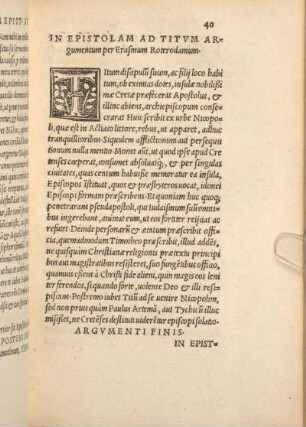 40
IN EPISTOLAM AD TITVM AR-
gumentum per Erasmum Roterodamum.
TItum discipulũ suum, ac filij loco habi
tum, ob eximias dotes, insulæ nobilissi
mæ Cretæ præfecerat Apostolus, &
illinc abiens, archiepiscopum conse-
crarat Huic scribit ex urbe Nicopo
li, quæ est in Actiaco littore, rebus, ut apparet, adhuc
tranquillioribus. Siquidem afflictionum aut persequu
tionum nulla mentio. Monet aũt, ut quod ipse apud Cre
tenses cœperat, consumet absoluatq́;, & per singulas
ciuitates, quas centum habuisse memoratur ea insula,
Episcopos istituat, quos & præsbyteros uocat, idonei
Episcopi formam præscribens. Et quniam huc quoq;
penetrarant pseudapostoli, qui iudaismum suũ omni-
bus ingerebant, animat eum, ut eos fortiter reijciat ac
refutet Deinde personarũ & ætatum præscribit offi-
cia, quemadmodum Timotheo præscribit, illud addẽs,
ne quisquam Christianæ religionis prætextu principi
bus aut magistratibus resisteret, suo fungẽtibus officio,
quamuis essent à Christi fide alieni, quin magis eos leni
ter ferendos, si quando forte, uolente Deo & illi resi-
piscant. Postremo iubet Titũ ad se uenire Nicopolim,
sed non prius quàm Paulus Artemã, aut Tychicũ illuc
misisset, ne Cretẽses destituti uiderẽtur episcopi solatio.
ARGVMENTI FINIS.
IN EPIST-